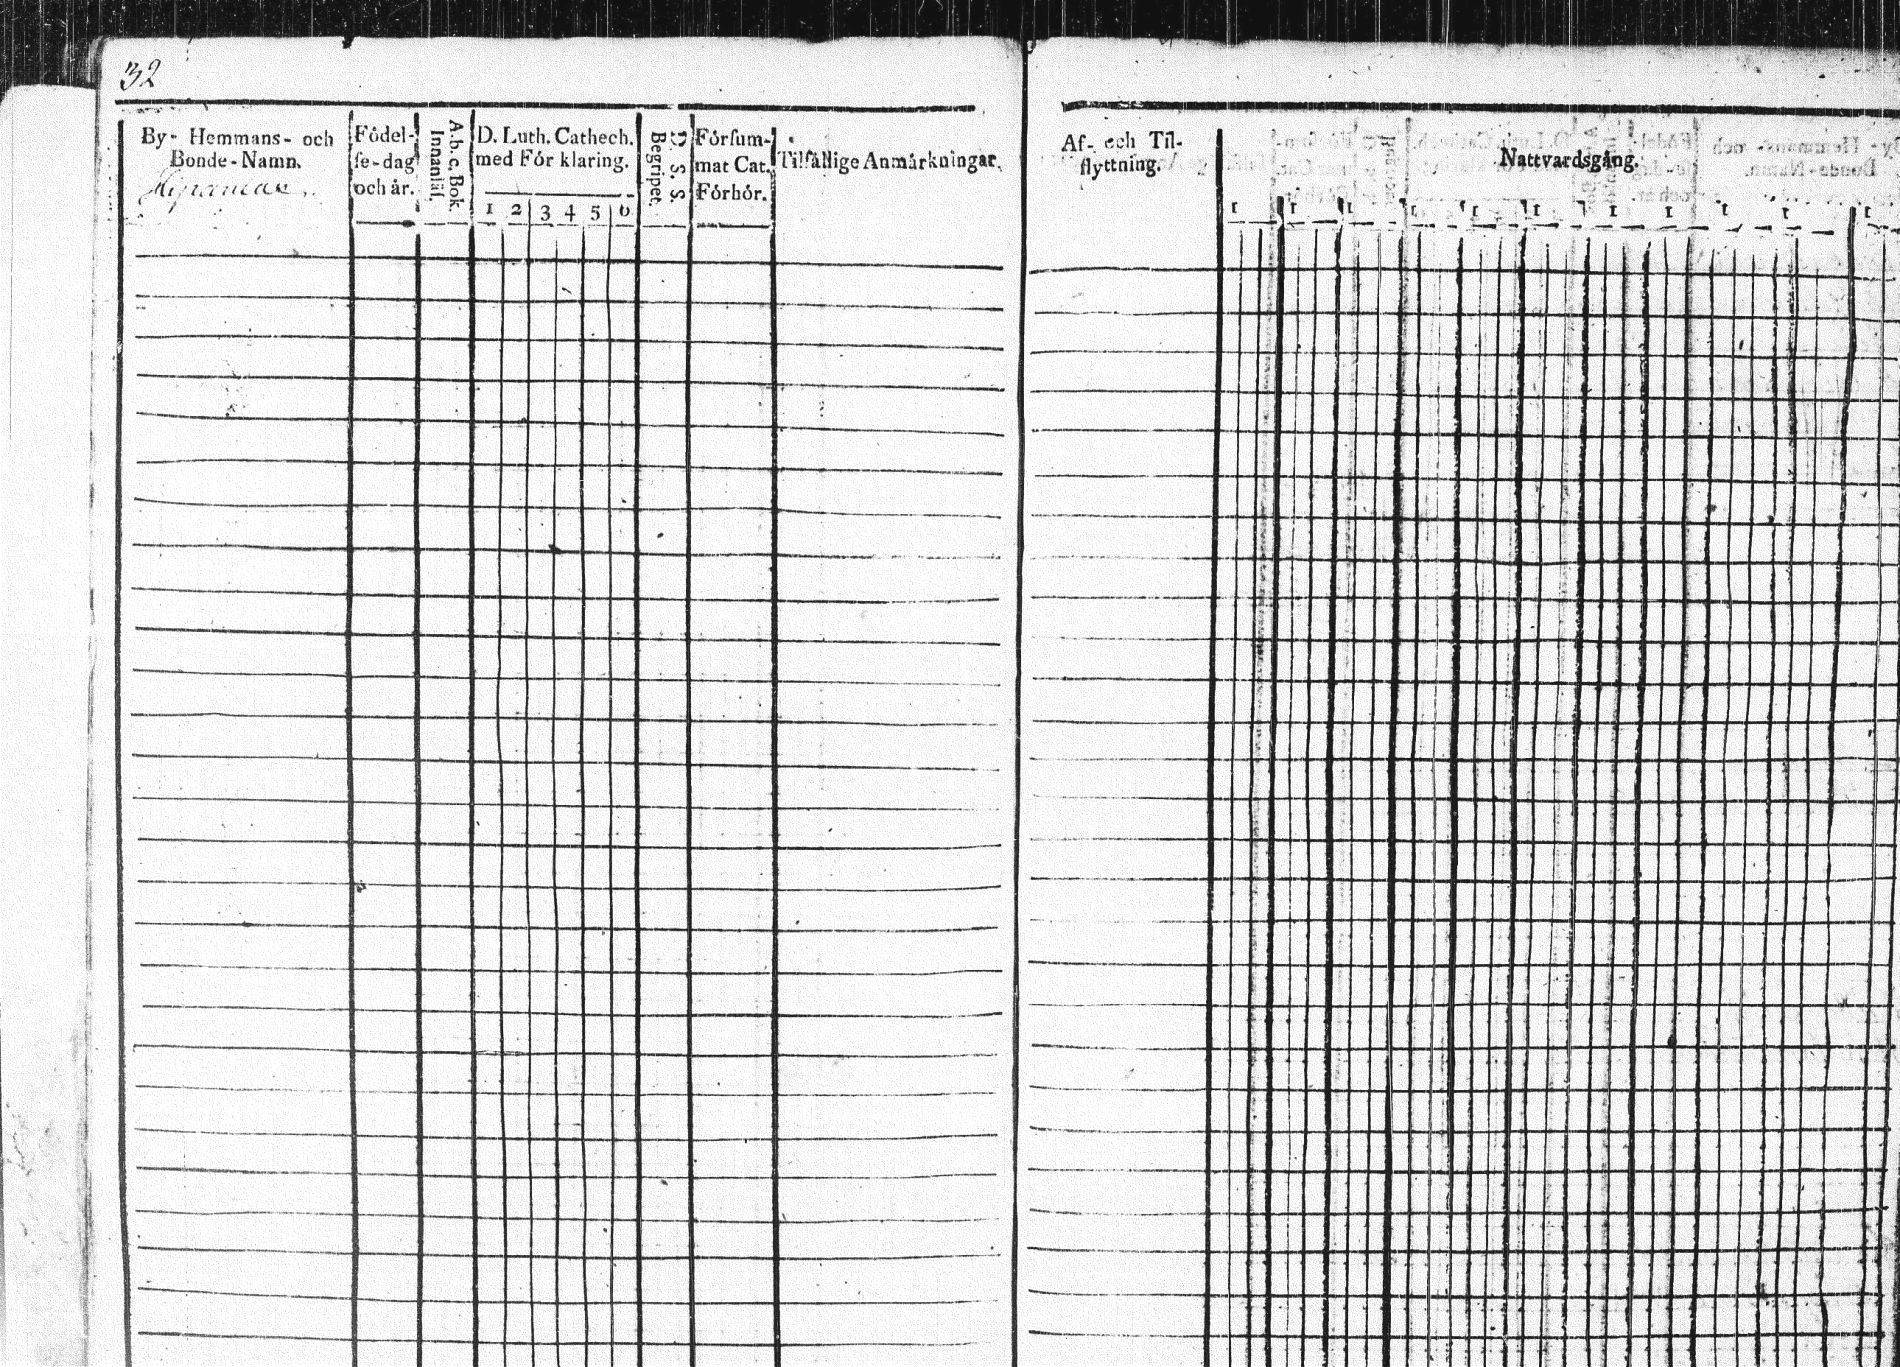 32
By- Hemmans- och
Bonde-Namn.
Födel-
se-dag
och år.
A.b.c.Bok.
Innanläs.
D. Luth. Cathech.
med För klaring.
1 2 3 4 5 6
D. S. S.
Begripet.
Försum-
mat Cat.
Förhör.
Tilfällige Anmärkningar.
Af- och Til-
flyttning.
Nattvardsgång.
1 1 1 1 1 1 1 1 1 1 1